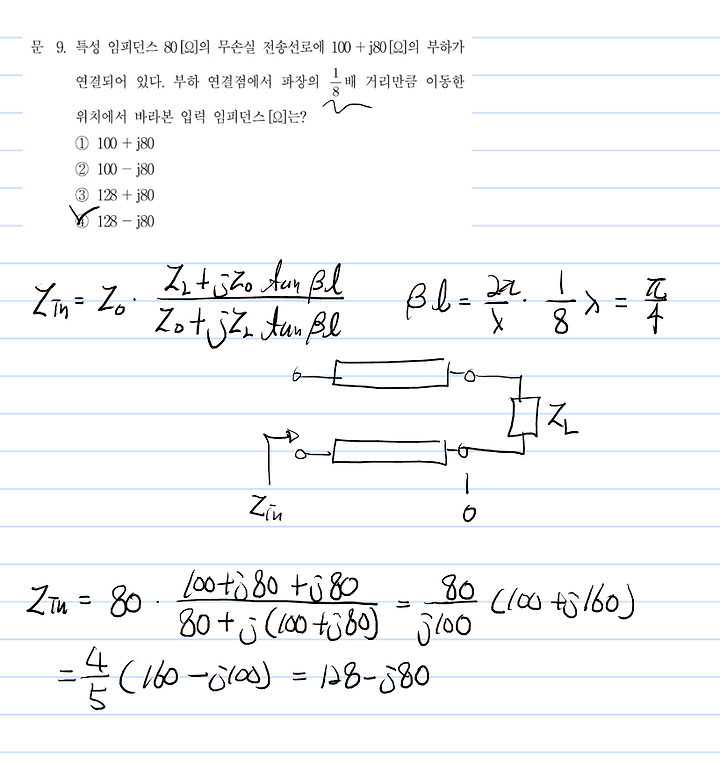 문 9. 특성 임피던스 80[Ω]의 무손실 전송선로에 100 + j80[Ω]의 부하가
연결되어 있다. 부하 연결점에서 파장의 1/8배 거리만큼 이동한
위치에서 바라본 입력 임피던스[Ω]는?
① 100 + j80
② 100 − j80
③ 128 + j80
④ 128 − j80
Zin = Z0 · (ZL + jZ0 tan βl)/(Z0 + jZL tan βl) βl = 2π/λ · 1/8 λ = π/4
ZL
Zin
0
Zin = 80 · (100+j80+j80)/(80+j(100+j80)) = 80/j100 (100+j160)
= 4/5 (160−j100) = 128−j80